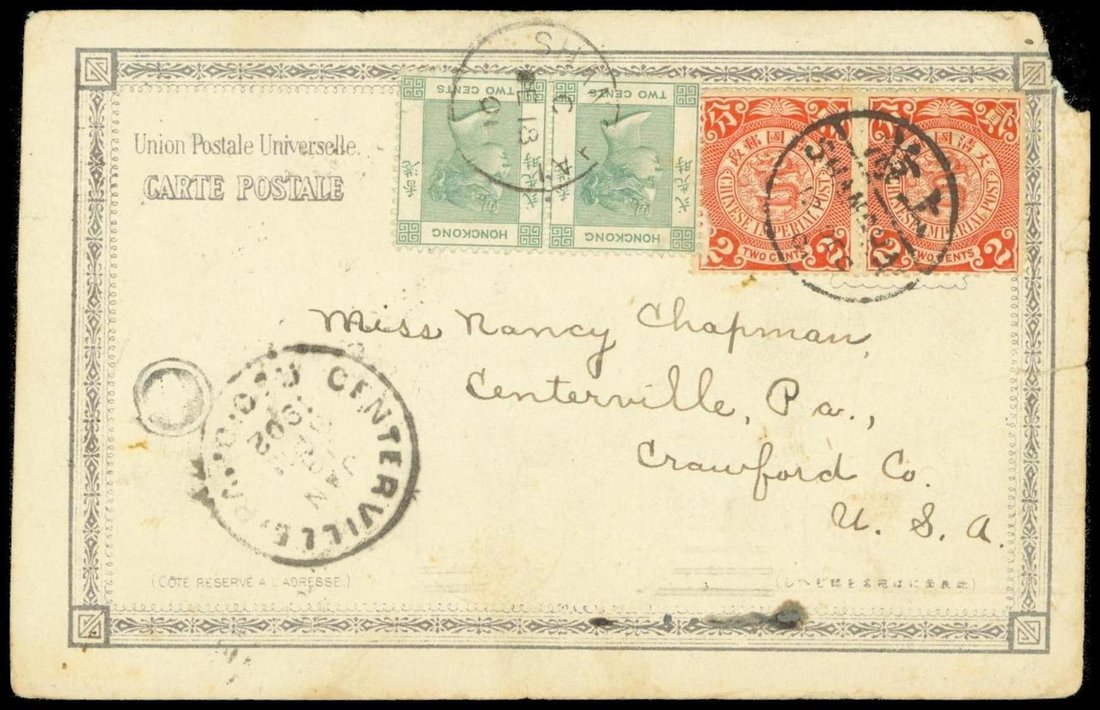 Union Postale Universelle.
CARTE POSTALE
TWO CENTS
香港
貳先時
HONGKONG
TWO CENTS
香港
貳先時
HONGKONG
SHANGHAI
C
DE 13
01
分
大清國郵政
CHINESE IMPERIAL POST
2 TWO CENTS 2
貳
大清國郵政
CHINESE IMPERIAL POST
2 TWO CENTS 2
SHANGHAI
Miss Nancy Chapman,
Centerville, Pa.,
Crawford Co.
U. S. A.
CENTERVILLE, PA.
JAN
1902
REC'D.
(CÔTÉ RÉSERVÉ A L'ADRESSE.)
(此表面には宛名を認むへし)